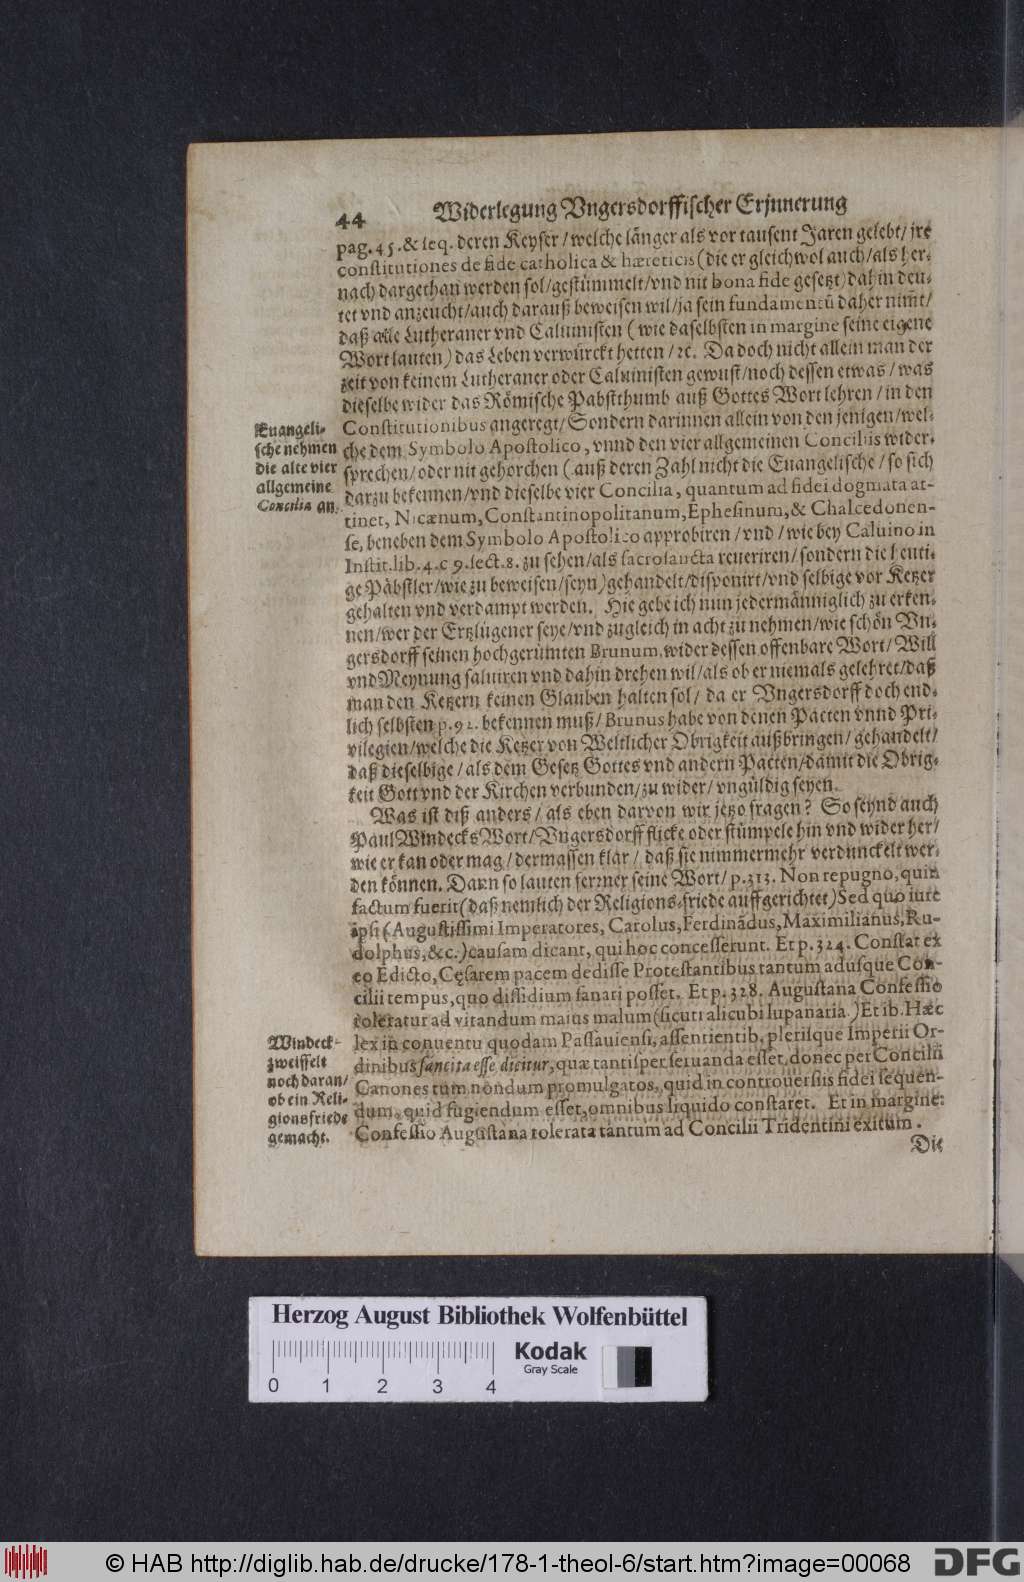 44
Widerlegung Vngersdorffischer Erjnnerung
pag. 45. & seq. deren Keyser / welche länger als vor tausent Jaren gelebt / jre
constitutiones de fide catholica & hæreticis (die er gleichwol auch / als her-
nach dargethan werden sol / gestümmelt / vnd nit bona fide gesetzt) dahin deu-
tet vnd anzeucht / auch darauß beweisen wil / ja sein fundamentū daher nim̃t /
daß alle Lutheraner vnd Caluinisten (wie daselbsten in margine seine eigene
Wort lauten) das Leben verwürckt hetten / ꝛc. Da doch nicht allein man der
zeit von keinem Lutheraner oder Caluinisten gewust / noch dessen etwas / was
dieselbe wider das Römische Pabstthumb auß Gottes Wort lehren / in den
Constitutionibus angeregt / Sondern darinnen allein von den jenigen / wel-
che dem Symbolo Apostolico, vnnd den vier allgemeinen Conciliis wider-
sprechen / oder nit gehorchen (auß deren Zahl nicht die Euangelische / so sich
darzu bekennen / vnd dieselbe vier Concilia, quantum ad fidei dogmata at-
tinet, Nicænum, Constantinopolitanum, Ephesinum, & Chalcedonen-
se, beneben dem Symbolo Apostolico approbiren / vnd / wie bey Caluino in
Instit. lib. 4. c 9. sect. 8. zu sehen / als sacrosancta reueriren / sondern die heuti-
ge Päbstler / wie zu beweisen / seyn) gehandelt / disponirt / vnd selbige vor Ketzer
gehalten vnd verdampt werden. Hie gebe ich nun jedermänniglich zu erken-
nen / wer der Ertzlügener seye / vnd zugleich in acht zu nehmen / wie schön Vn-
gersdorff seinen hochgerümten Brunum, wider dessen offenbare Wort / Will
vnd Meynung saluiren vnd dahin drehen wil / als ob er niemals gelehret / daß
man den Ketzern keinen Glauben halten sol / da er Vngersdorff doch end-
lich selbsten p. 92. bekennen muß / Brunus habe von denen Pacten vnnd Pri-
vilegien / welche die Ketzer von Weltlicher Obrigkeit außbringen / gehandelt /
daß dieselbige / als dem Gesetz Gottes vnd andern Pacten / damit die Obrig-
keit Gott vnd der Kirchen verbunden / zu wider / vngüldig seyen.
Was ist diß anders / als eben darvon wir jetzo fragen? So seynd auch
Paul Windecks Wort / Vngersdorff flicke oder stümpele hin vnd wider her /
wie er kan oder mag / dermassen klar / daß sie nimmermehr verdunckelt wer-
den können. Dann so lauten ferrner seine Wort / p. 313. Non repugno, quin
factum fuerit (daß nemlich der Religions-friede auffgerichtet) Sed quo iure
ipsi (Augustissimi Imperatores, Carolus, Ferdinādus, Maximilianus, Ru-
dolphus, &c.) causam dicant, qui hoc concesserunt. Et p. 324. Constat ex
eo Edicto, Cęsarem pacem dedisse Protestantibus tantum adusque Con-
cilii tempus, quo dissidium sanari posset. Et p. 328. Augustana Confessio
toleratur ad vitandum maius malum (sicuti alicubi lupanaria.) Et ib. Hæc
lex in conuentu quodam Passauiensi, assentientib. plerisque Imperii Or-
dinibus sancita esse dicitur, quæ tantisper seruanda esset, donec per Concilii
Canones tum nondum promulgatos, quid in controuersiis fidei sequen-
dum, quid fugiendum esset, omnibus liquido constaret. Et in margine:
Confessio Augustana tolerata tantum ad Concilii Tridentini exitum.
Die
Euangeli-
sche nehmen
die alte vier
allgemeine
Concilia an.
Windeck
zweiffelt
noch daran /
ob ein Reli-
gionsfriede
gemacht.
Herzog August Bibliothek Wolfenbüttel
Kodak
Gray Scale
0 1 2 3 4
© HAB http://diglib.hab.de/drucke/178-1-theol-6/start.htm?image=00068
DFG